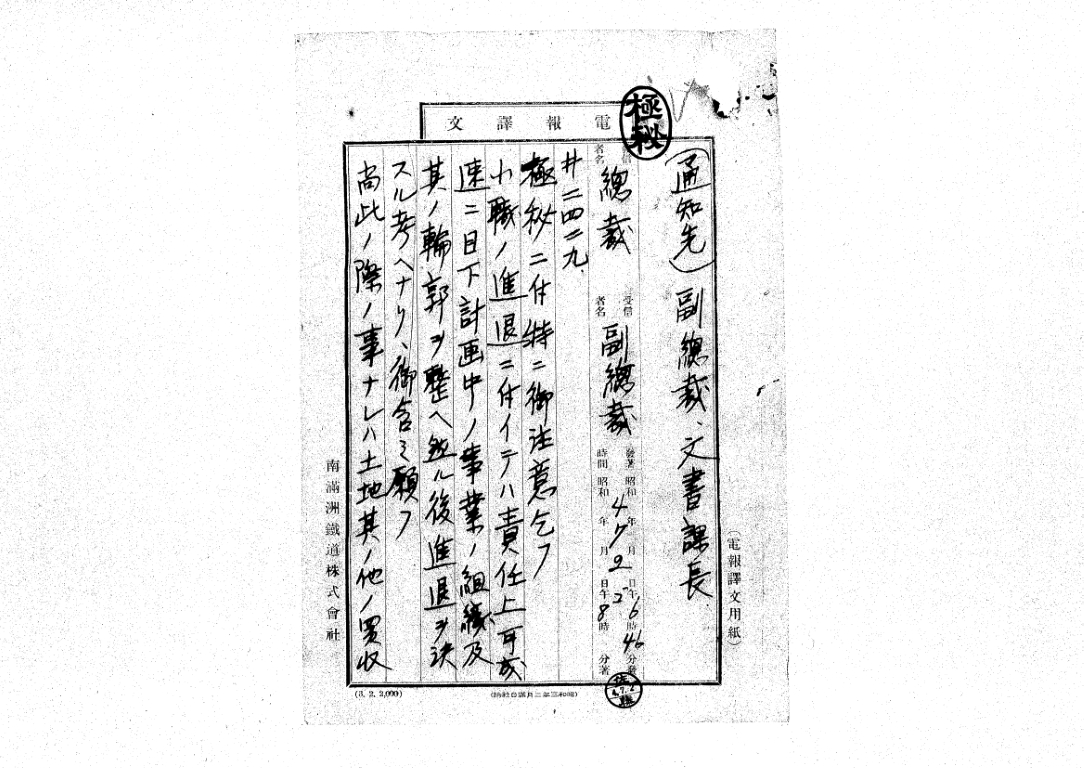 極秘
電報譯文
(通知先)副總裁、文書課長
發信者名 總裁 受信者名 副總裁
發著時間 昭和 4年 7月 2日 午 6時 46分發
昭和 年 月 日 午 8時 分著
井二四二九
極秘ニ付特ニ御注意乞フ
小職ノ進退ニ付イテハ責任上可成
速ニ目下計画中ノ事業ノ組織及
其ノ輪郭ヲ整ヘ然ル後進退ヲ決
スル考ヘナリ、御含ミ願フ
尚此ノ際ノ事ナレハ土地其ノ他ノ買収
南滿洲鐵道株式會社
(電報譯文用紙)
(3. 2. 2,000)